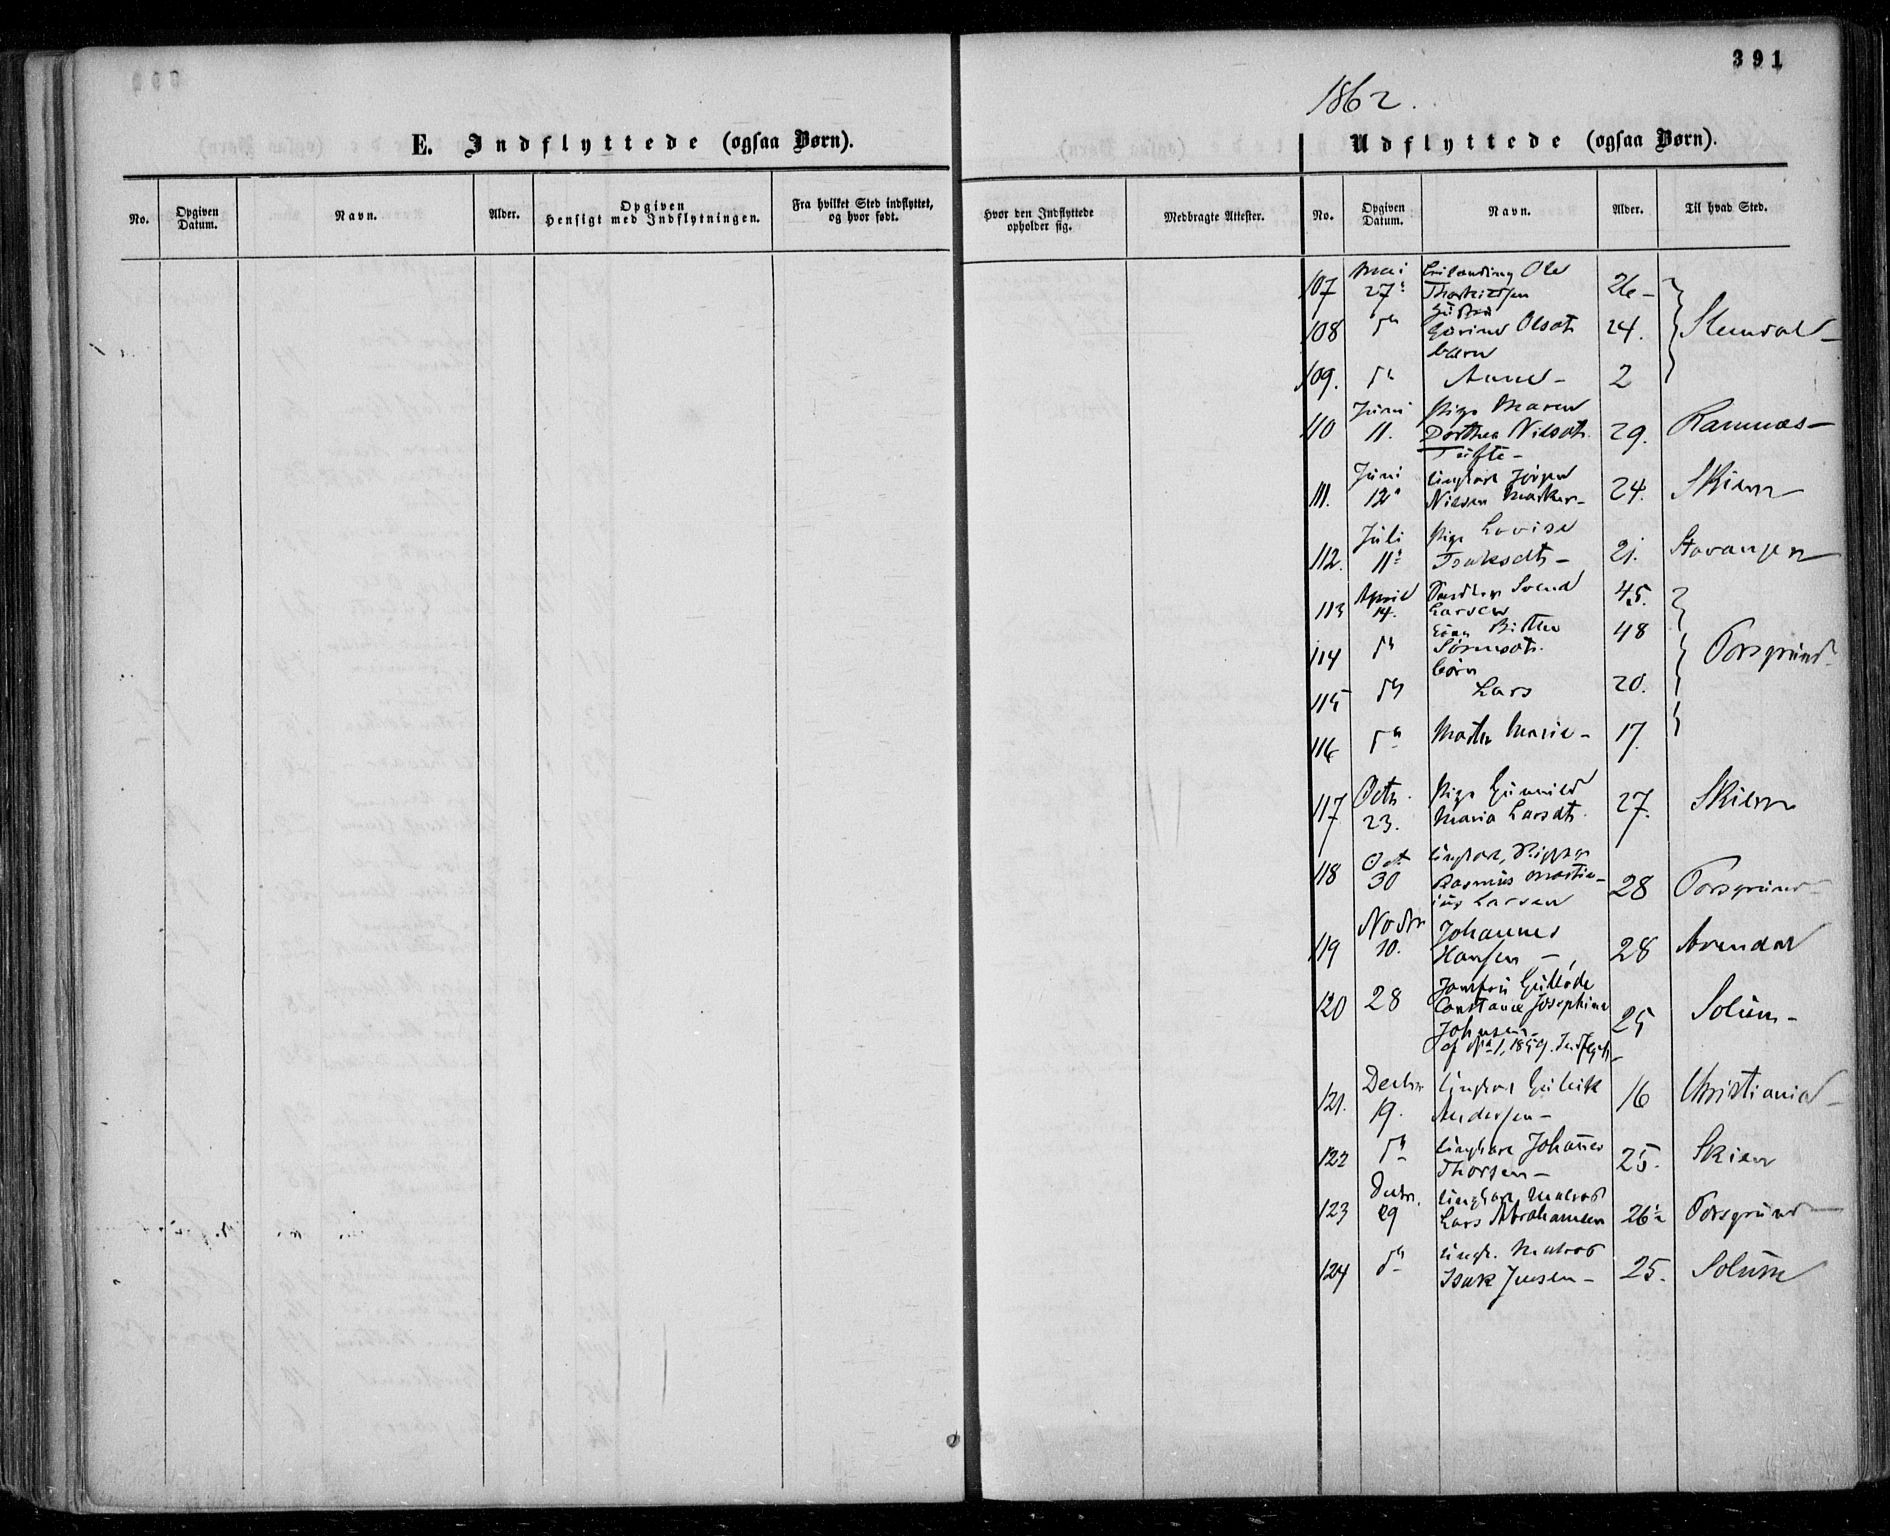 391
1862.
E. Indflyttede (ogsaa Børn).
Udflyttede (ogsaa Børn).
No.
Opgiven Datum.
Navn.
Alder.
Opgiven Hensigt med Indflytningen.
Fra hvilket Sted indflyttet, og hvor født.
Hvor den Indflyttede opholder sig.
Medbragte Attester.
No.
Opgiven Datum.
Navn.
Alder.
Til hvad Sted.
107 Mai 27 Ole
26
108 Olsdt. 24.
109. Anne 2
110 Juni 11. Pige Maren
Dorthea Nilsdt. 29. Ramnæs
Tufte
111. Juni 12 Ungkarl Jörgen
Nilsen 24. Skien
112. Juli 11 Pige Lovise
Isaksdtr 21. Stavanger
113 April 14. Svend 45.
Larsen
114 48
börn
Porsgrund
115 Lars 20.
116 Marie 17
117 Octr. 23. Pige Gunnild
Maria Larsdtr. 27. Skien
118 Oct 30 Ungkarl,
Rasmus Martin-
ius Larsen 28 Porsgrund
119 Novbr 10. Johannes
Hansen 28 Arendal
120 28 Jomfru
Constance Josephine
Johnsen 25 Solum
1, 1859. Indflyt
121. Decbr 19. Ungkarl Gulleik
Andersen 16 Christiania
122 Ungkarl Johannes
Thorsen 25. Skien
123 Decbr. 29 Ungkarl Matros
Lars Abrahamsen 26½ Porsgrund
124 Ungk. Matros
Isak Jensen 25. Solum